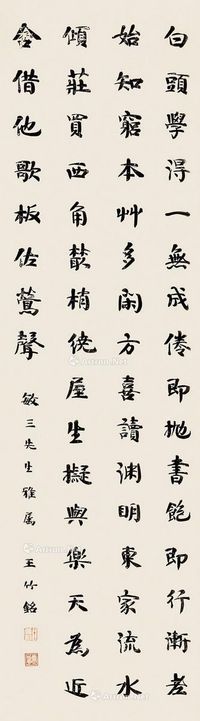 白頭學得一無成倦即抛書飽即行漸老
始知窮本艸多閑方喜讀渊明東家流水
傾莊買西角叢梢繞屋生擬與樂天為近
舍借他歌板佐鶯聲
敏三先生雅属 王竹銘